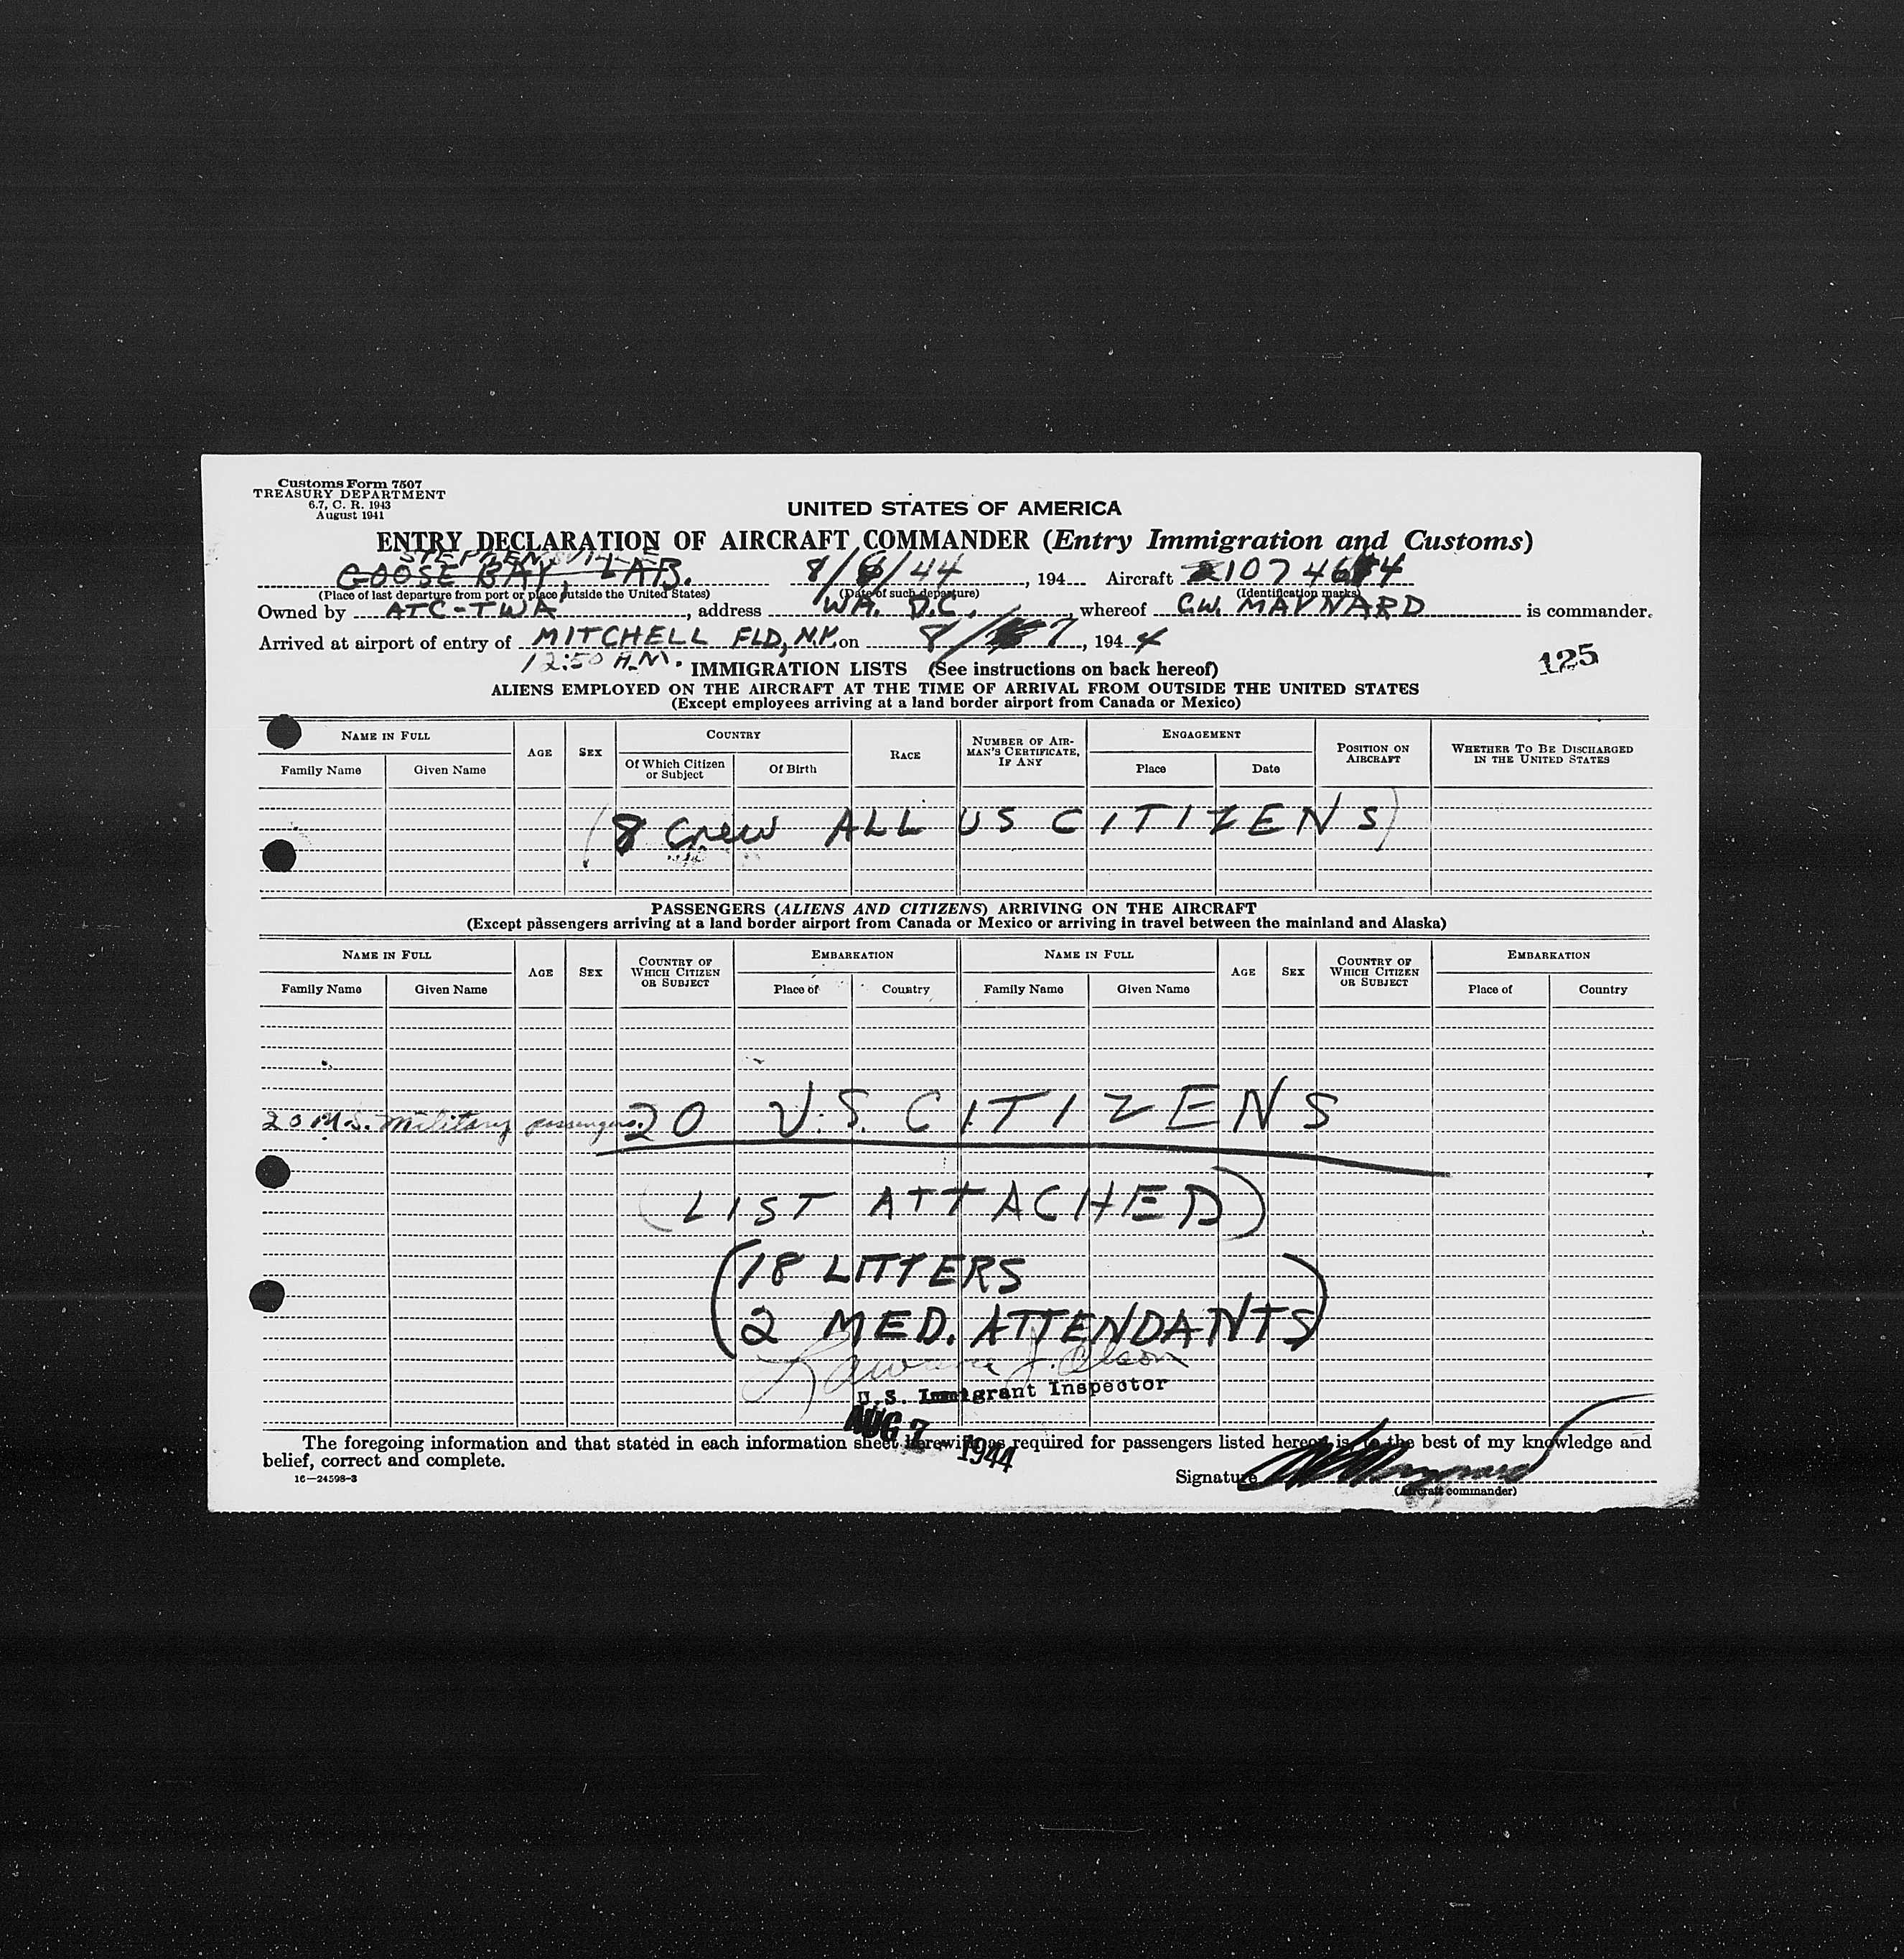 Customs Form 7507
TREASURY DEPARTMENT
6.7, C. R. 1943
August 1941
UNITED STATES OF AMERICA
ENTRY DECLARATION OF AIRCRAFT COMMANDER (Entry Immigration and Customs)
STEPHENSVILLE
GOOSE BAY, LAB. 8/6/44, 194 Aircraft 1074
(Place of last departure from port or place outside the United States) (Date of such departure) (Identification marks)
Owned by ATC-TWA, address WA. D.C., whereof C.W. MAYNARD is commander.
Arrived at airport of entry of MITCHELL FLD, N.Y. on 8/7, 1944
12:50 A.M. IMMIGRATION LISTS (See instructions on back hereof)
125
ALIENS EMPLOYED ON THE AIRCRAFT AT THE TIME OF ARRIVAL FROM OUTSIDE THE UNITED STATES
(Except employees arriving at a land border airport from Canada or Mexico)
NAME IN FULL AGE SEX COUNTRY RACE NUMBER OF AIRMAN'S CERTIFICATE, IF ANY ENGAGEMENT POSITION ON AIRCRAFT WHETHER TO BE DISCHARGED IN THE UNITED STATES
Family Name Given Name Of Which Citizen or Subject Of Birth Place Date
(8 Crew ALL US CITIZENS)
PASSENGERS (ALIENS AND CITIZENS) ARRIVING ON THE AIRCRAFT
(Except passengers arriving at a land border airport from Canada or Mexico or arriving in travel between the mainland and Alaska)
NAME IN FULL AGE SEX COUNTRY OF WHICH CITIZEN OR SUBJECT EMBARKATION NAME IN FULL AGE SEX COUNTRY OF WHICH CITIZEN OR SUBJECT EMBARKATION
Family Name Given Name Place of Country Family Name Given Name Place of Country
20 U.S. Military passengers. 20 U.S. CITIZENS
(LIST ATTACHED)
(18 LITTERS
2 MED. ATTENDANTS)
Lawrence J. Olson
U.S. Immigrant Inspector
AUG 7 - 1944
The foregoing information and that stated in each information sheet herewith as required for passengers listed hereon is, to the best of my knowledge and
belief, correct and complete.
16—24598-3
Signature
(Aircraft commander)